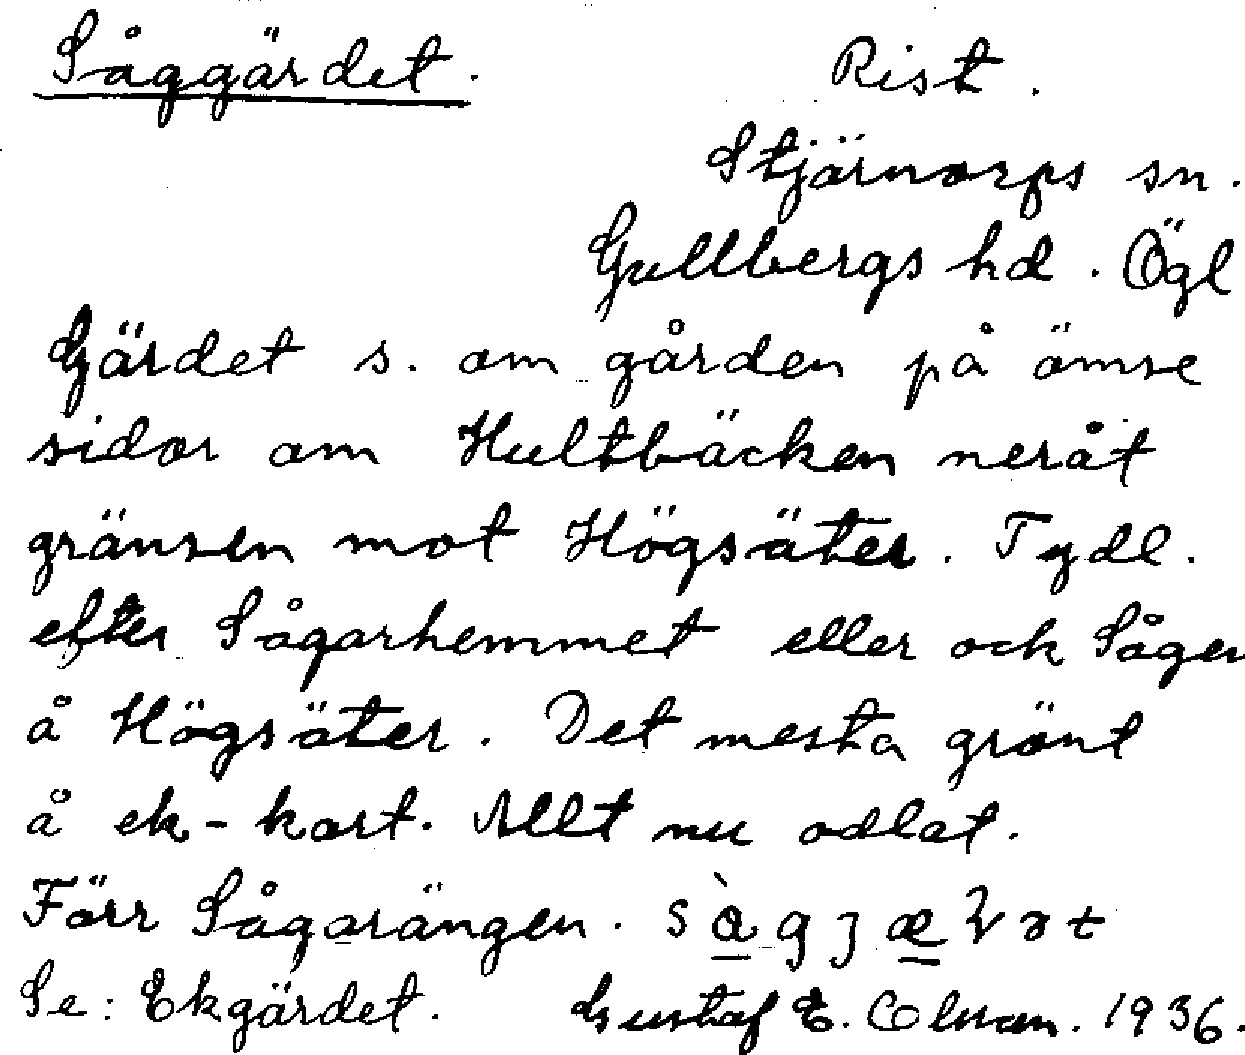 Såggärdet. Rist.
Stjärnorps sn.
Gullbergs hd. Ögl
Gärdet s. om gården på ömse
sidor om Hultbäcken neråt
gränsen mot Högsäter. Tydl.
efter Sågarhemmet eller och Sågen
å Högsäter. Det mesta grönt
å ek-kart. Allt nu odlat.
Förr Sågarängen.
Se: Ekgärdet. Gustaf E. 1936.